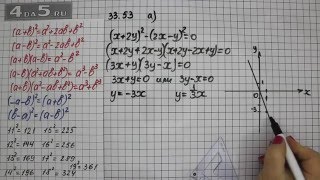 4DA5.RU
33.53 а)
(a+b)²=a²+2ab+b²
(a-b)²=a²-2ab+b²
(a+b)(a-b)=a²-b²
(a-b)(a²+ab+b²)=a³-b³
(a+b)(a²-ab+b²)=a³+b³
(-a-b)²=(a+b)²
(b-a)²=(a-b)²
11²=121 15²=225
12²=144 16²=256
13²=169 17²=289
14²=196 18²=324
19²=361
(x+2y)²-(2x-y)²=0
(x+2y+2x-y)(x+2y-2x+y)=0
(3x+y)(3y-x)=0
3x+y=0 или 3y-x=0
y=-3x y=⅓x
y
x
0
1
-3